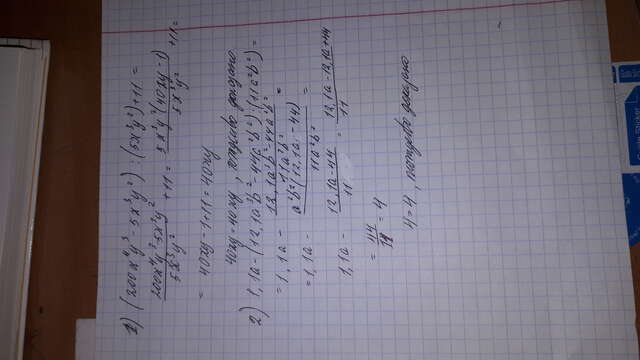 1) (200x⁴y³ - 5x³y²) : (5x³y²) + 11 =
200x⁴y³ - 5x³y² / 5x³y² + 11 = 5x³y²(40xy - 1) / 5x³y² + 11 =
= 40xy - 1 + 11 = 40xy
40xy = 40xy, тождество доказано.
2) 1,1a - (12,1a³b² - 44a²b²) : (11a²b²) =
= 1,1a - 12,1a³b² - 44a²b² / 11a²b² =
= 1,1a - a²b²(12,1a - 44) / 11a²b² =
1,1a - 12,1a - 44 / 11 = 12,1a - 12,1a + 44 / 11
= 44 / 11 = 4
4 = 4, тождество доказано
Sticker